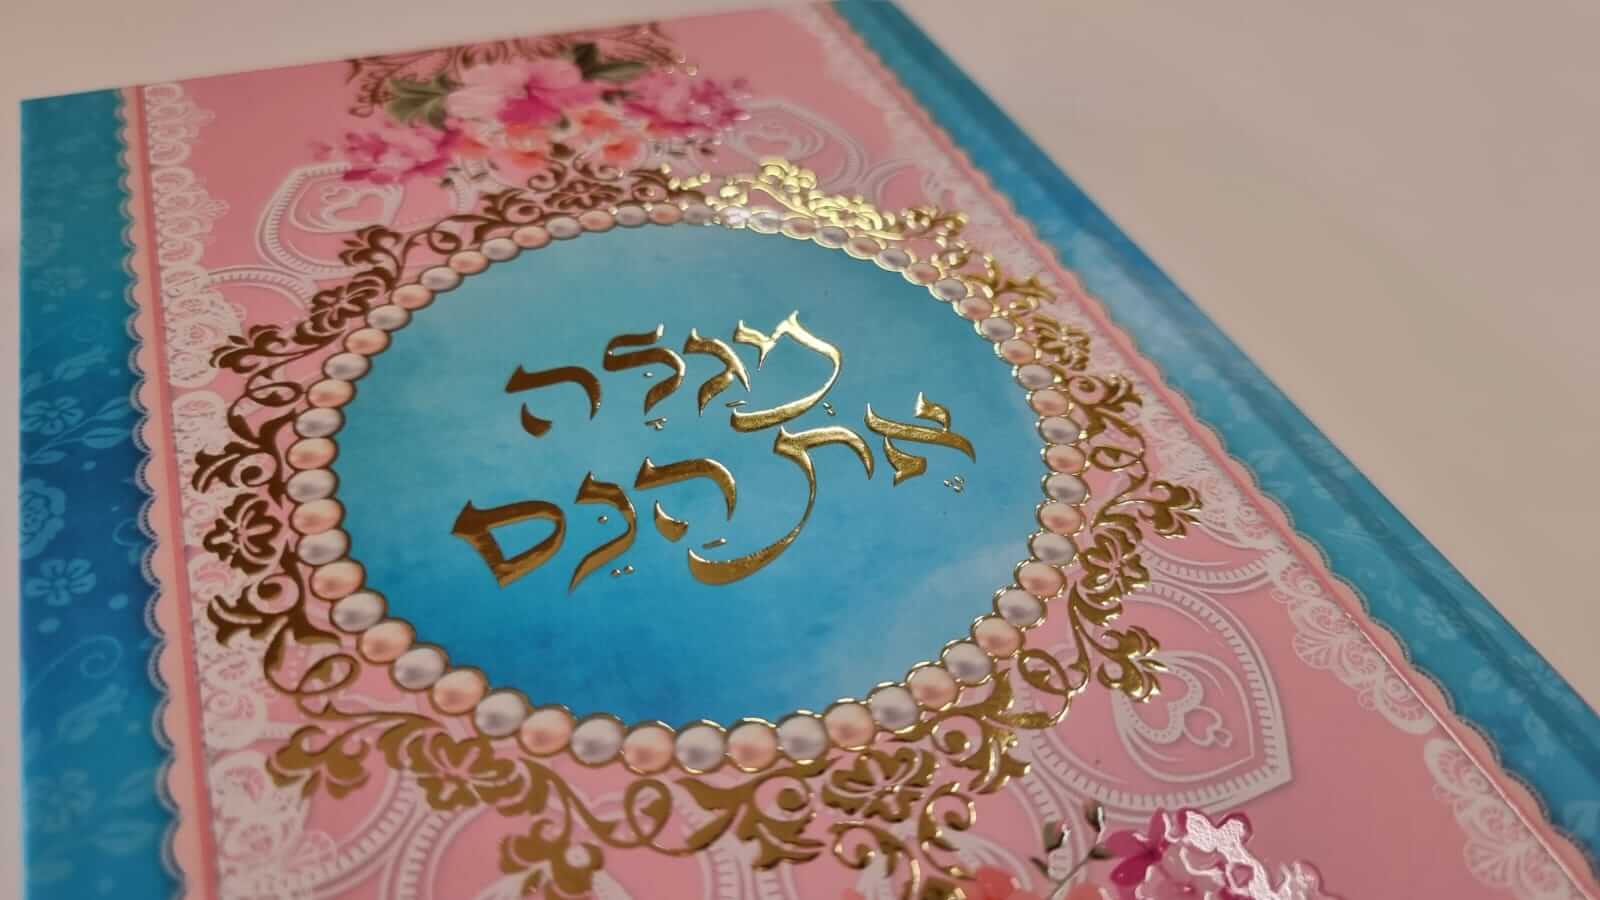 מְגַלָּה
אֶת הַנֵּס